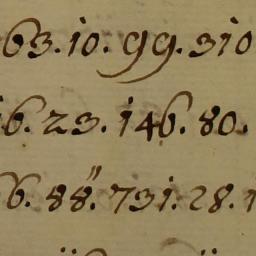 63. 10. 99. 310
6. 23. 146. 80.
6. 88." 731. 28. 1